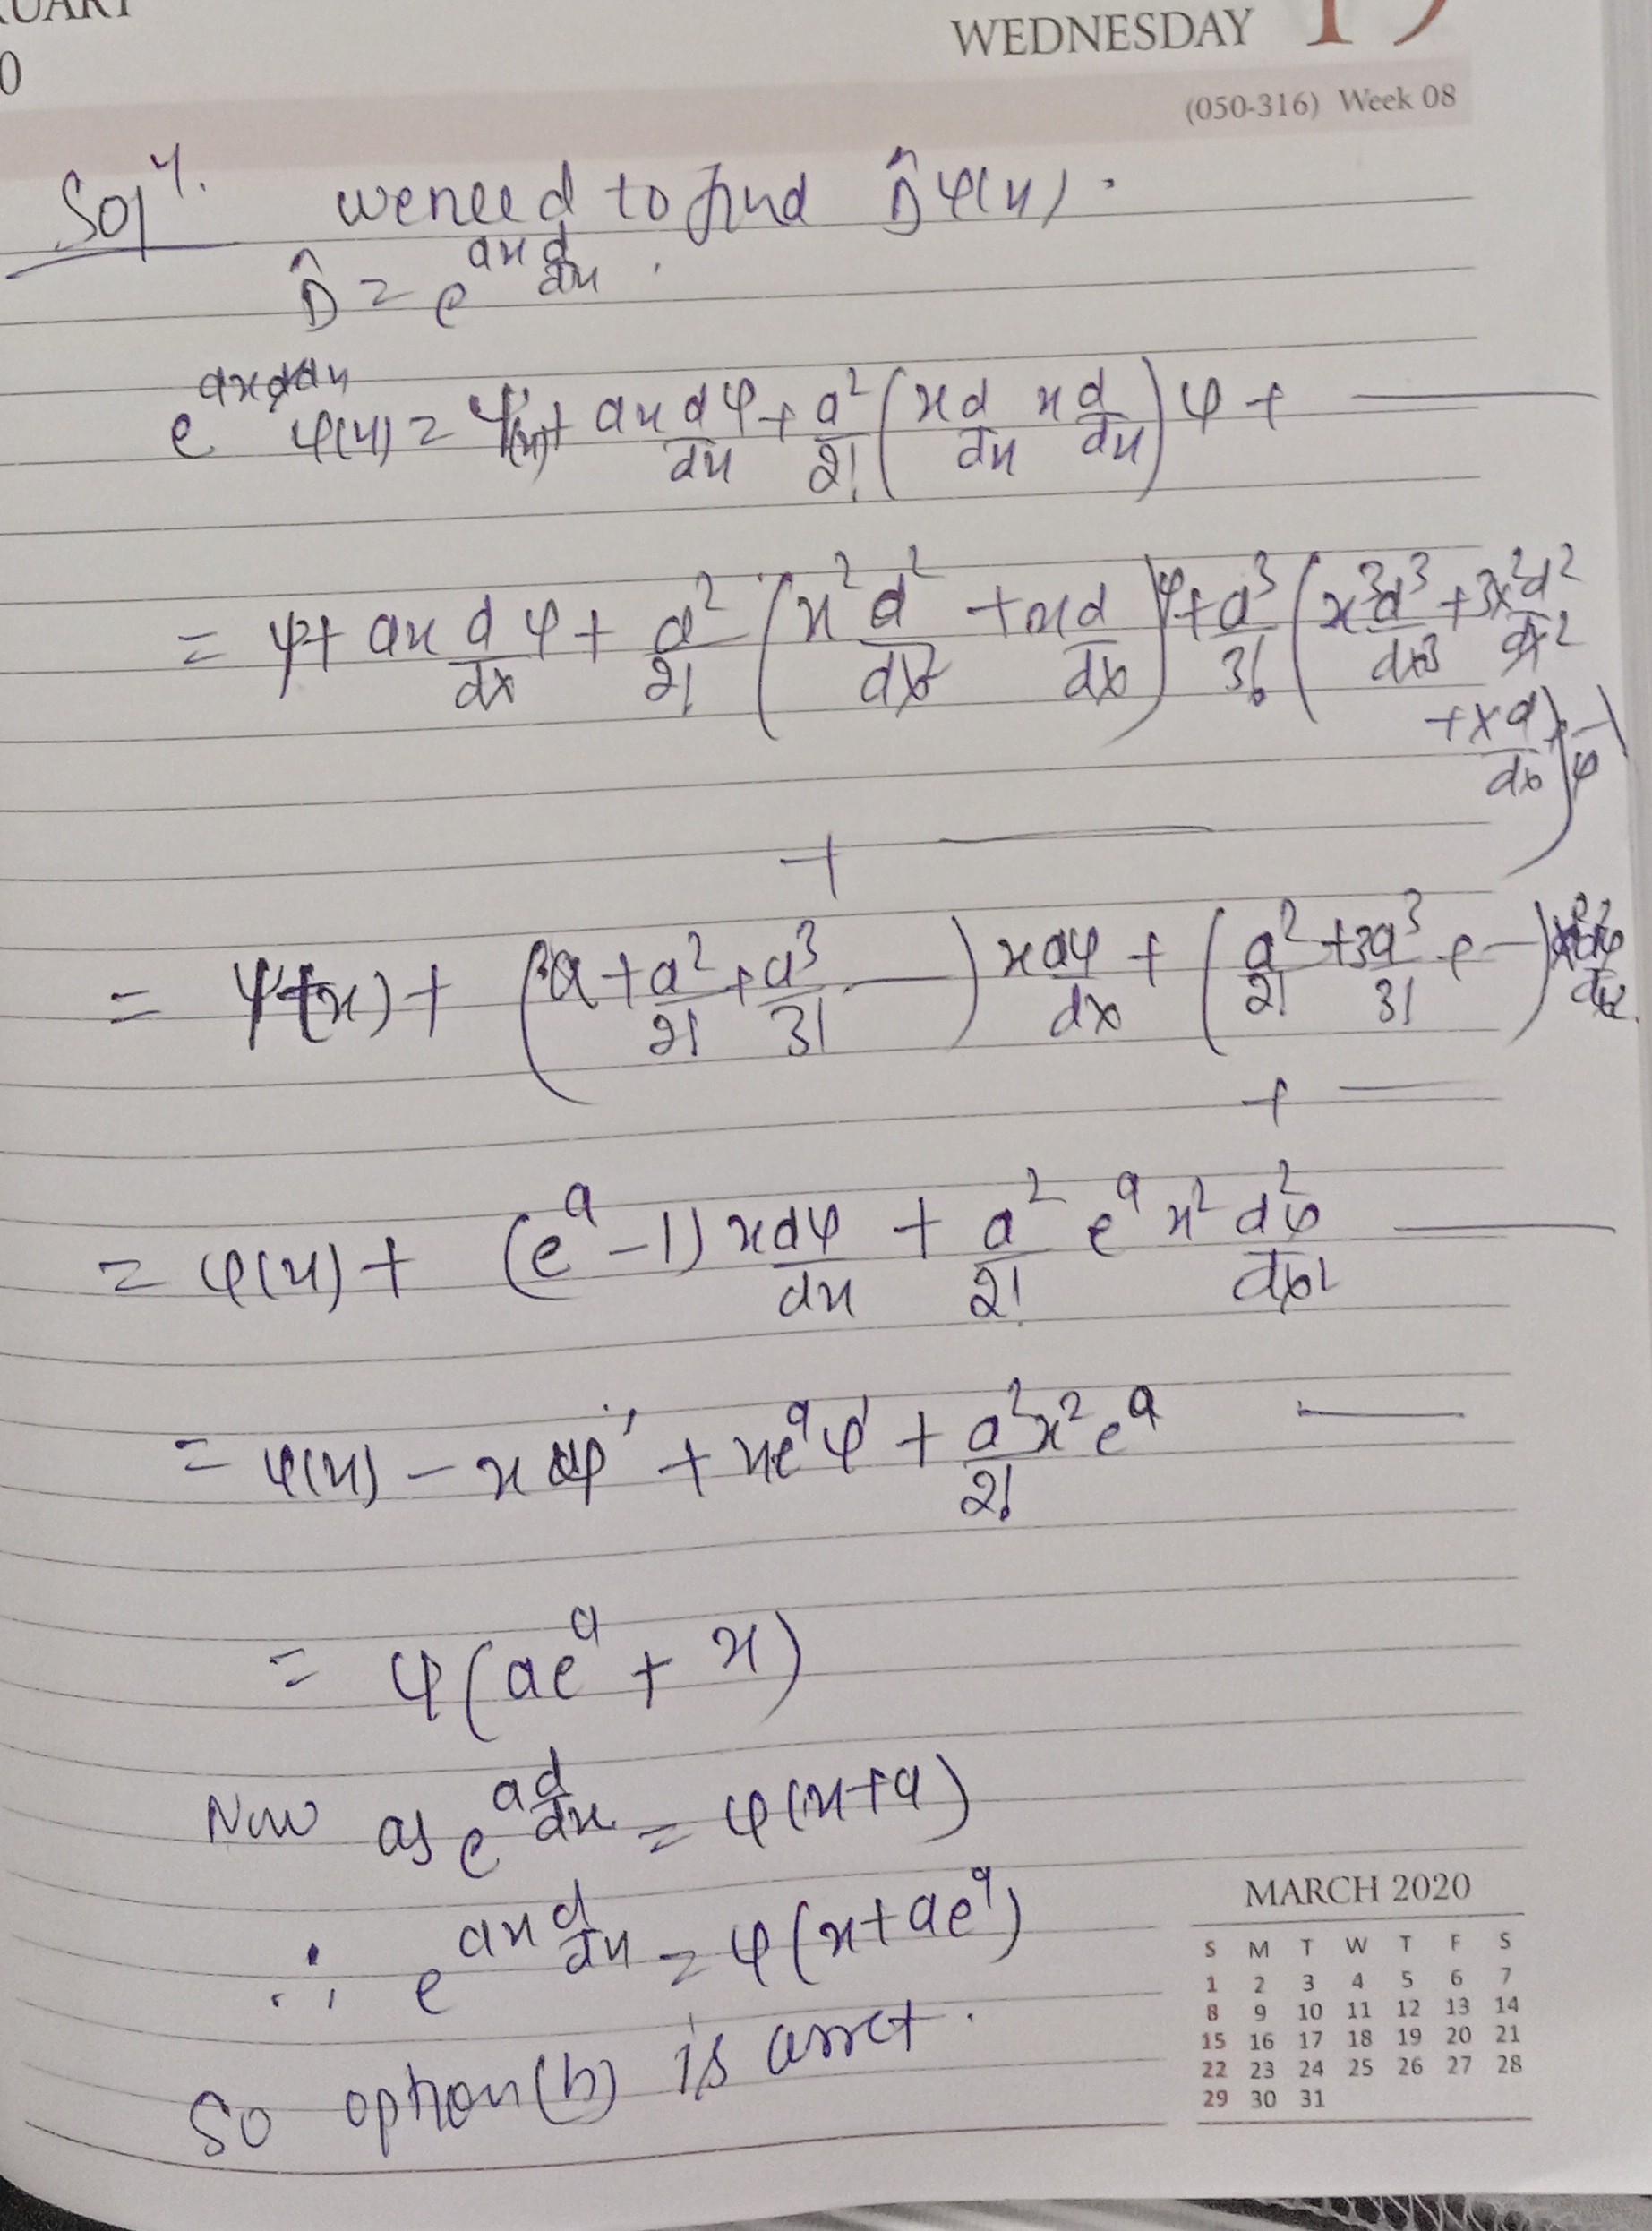 WEDNESDAY 19
(050-316) Week 08
Solⁿ. we need to find D̂ψ(x).
D̂ = e^{ax d/dx}.
e^{ax d/dx} ψ(x) = ψ(x) + ax dψ/dx + a²/2! (x d/dx x d/dx) ψ + ———
= ψ + ax d/dx ψ + a²/2! (x² d²/dx² + x d/dx) ψ + a³/3! (x³ d³/dx³ + 3x² d²/dx²
+ x d/dx) ψ
+ ———
= ψ(x) + (a + a²/2! + a³/3! —) x dψ/dx + (a²/2! + 3a³/3! + —) x² d²ψ/dx²
+ ——
= ψ(x) + (e^a - 1) x dψ/dx + a²/2! e^a x² d²ψ/dx² ——
= ψ(x) - xψ' + xe^aψ' + a²x²/2! e^a ——
= ψ(ae^a + x)
Now as e^{a d/dx} = ψ(x+a)
∴ e^{ax d/dx} = ψ(x + ae^a)
So option (b) is corret.
MARCH 2020
S M T W T F S
1 2 3 4 5 6 7
8 9 10 11 12 13 14
15 16 17 18 19 20 21
22 23 24 25 26 27 28
29 30 31